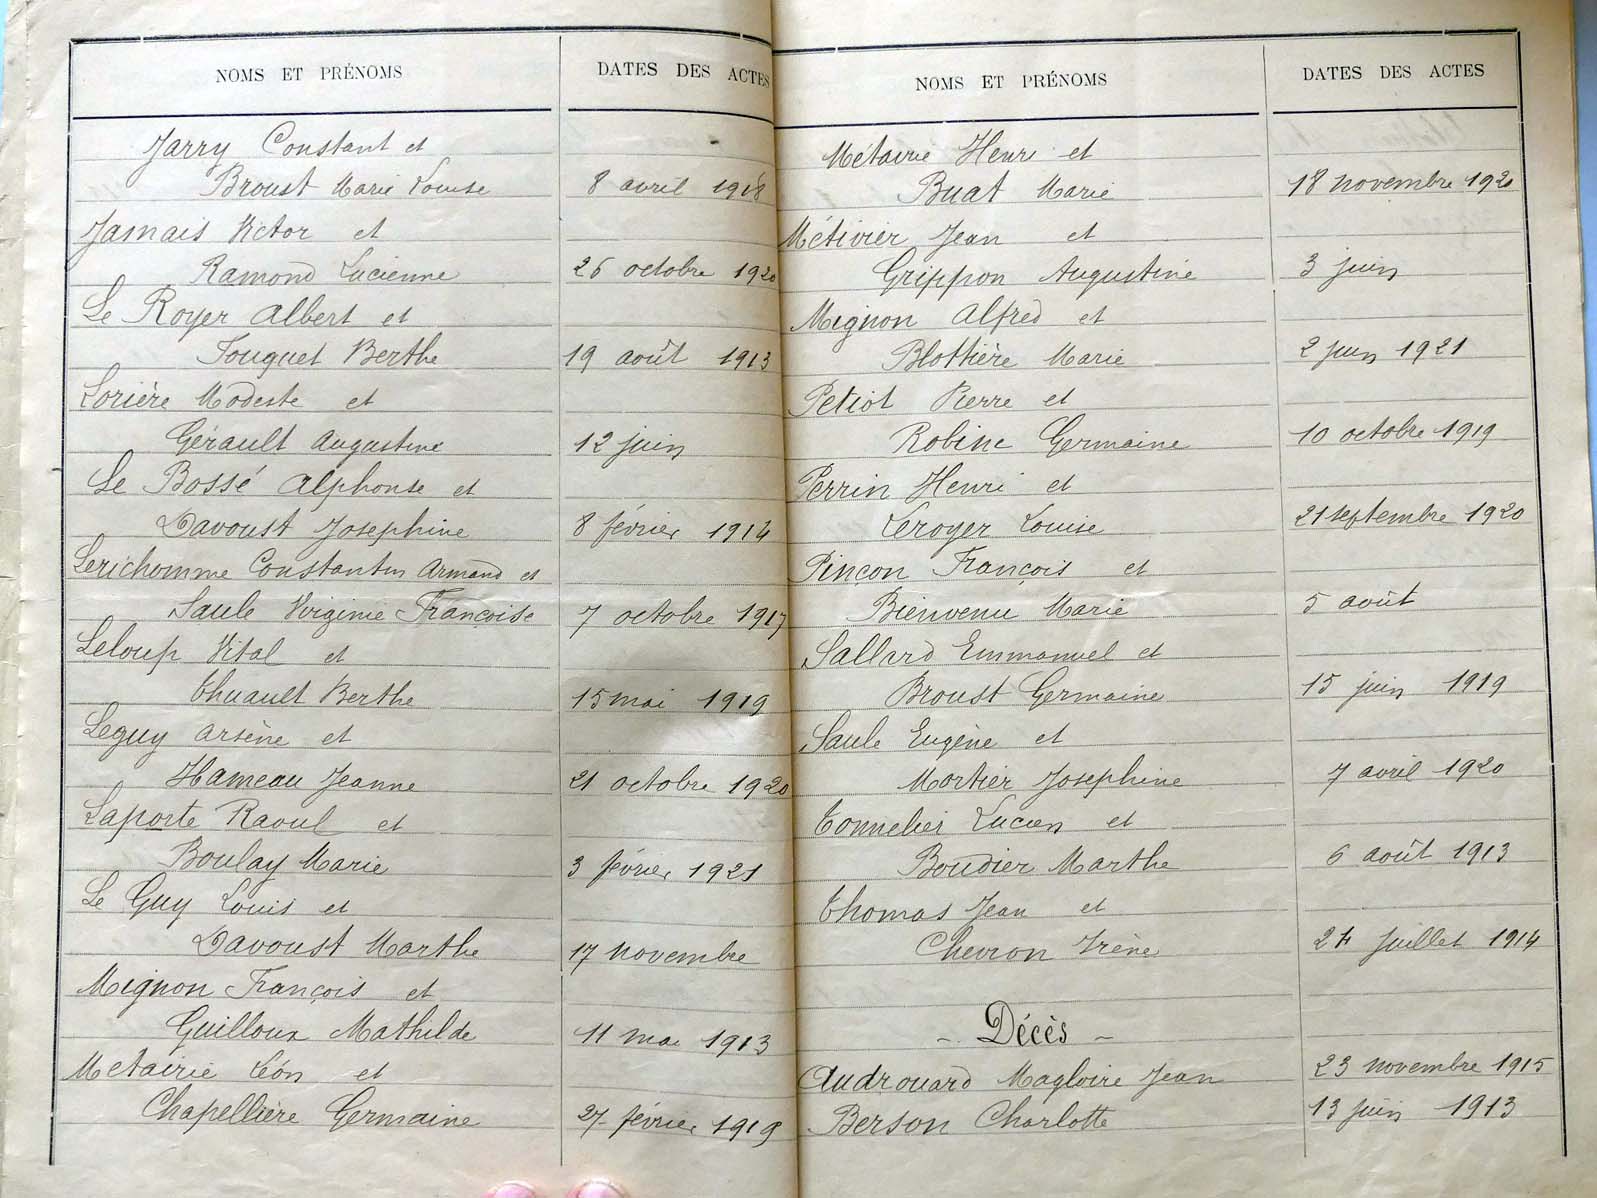 NOMS ET PRÉNOMS DATES DES ACTES
Jarry Constant et
Broust Marie Louise 8 avril 1918
Jamais Victor et
Ramond Lucienne 26 octobre 1920
Le Royer Albert et
Fouquet Berthe 19 août 1913
Lorière Modeste et
Gérault Augustine 12 juin
Le Bossé Alphonse et
Davoust Josephine 8 février 1914
Lerichomme Constantin Armand et
Saule Virginie Françoise 7 octobre 1917
Leloup Vital et
Thuault Berthe 15 mai 1919
Leguy Arsène et
Hameau Jeanne 21 octobre 1920
Laporte Raoul et
Boulay Marie 3 février 1921
Le Guy Louis et
Davoust Marthe 17 novembre
Mignon François et
Guilloux Mathilde 11 mai 1913
Metairie Léon et
Chapellière Germaine 27 février 1919
NOMS ET PRÉNOMS DATES DES ACTES
Metairie Henri et
Buat Marie 18 novembre 1920
Métivier Jean et
Grippon Augustine 3 juin
Mignon Alfred et
Blottière Marie 2 juin 1921
Petiot Pierre et
Robine Germaine 10 octobre 1919
Perrin Henri et
Leroyer Louise 21 septembre 1920
Pinçon François et
Bienvenu Marie 5 août
Sallard Emmanuel et
Broust Germaine 15 juin 1919
Saule Eugène et
Mortier Josephine 7 avril 1920
Tonnelier Lucien et
Boudier Marthe 6 août 1913
Thomas Jean et
Chevron Irène 24 juillet 1914
- Décès -
Audrouard Magloire Jean 23 novembre 1915
Berson Charlotte 13 juin 1913